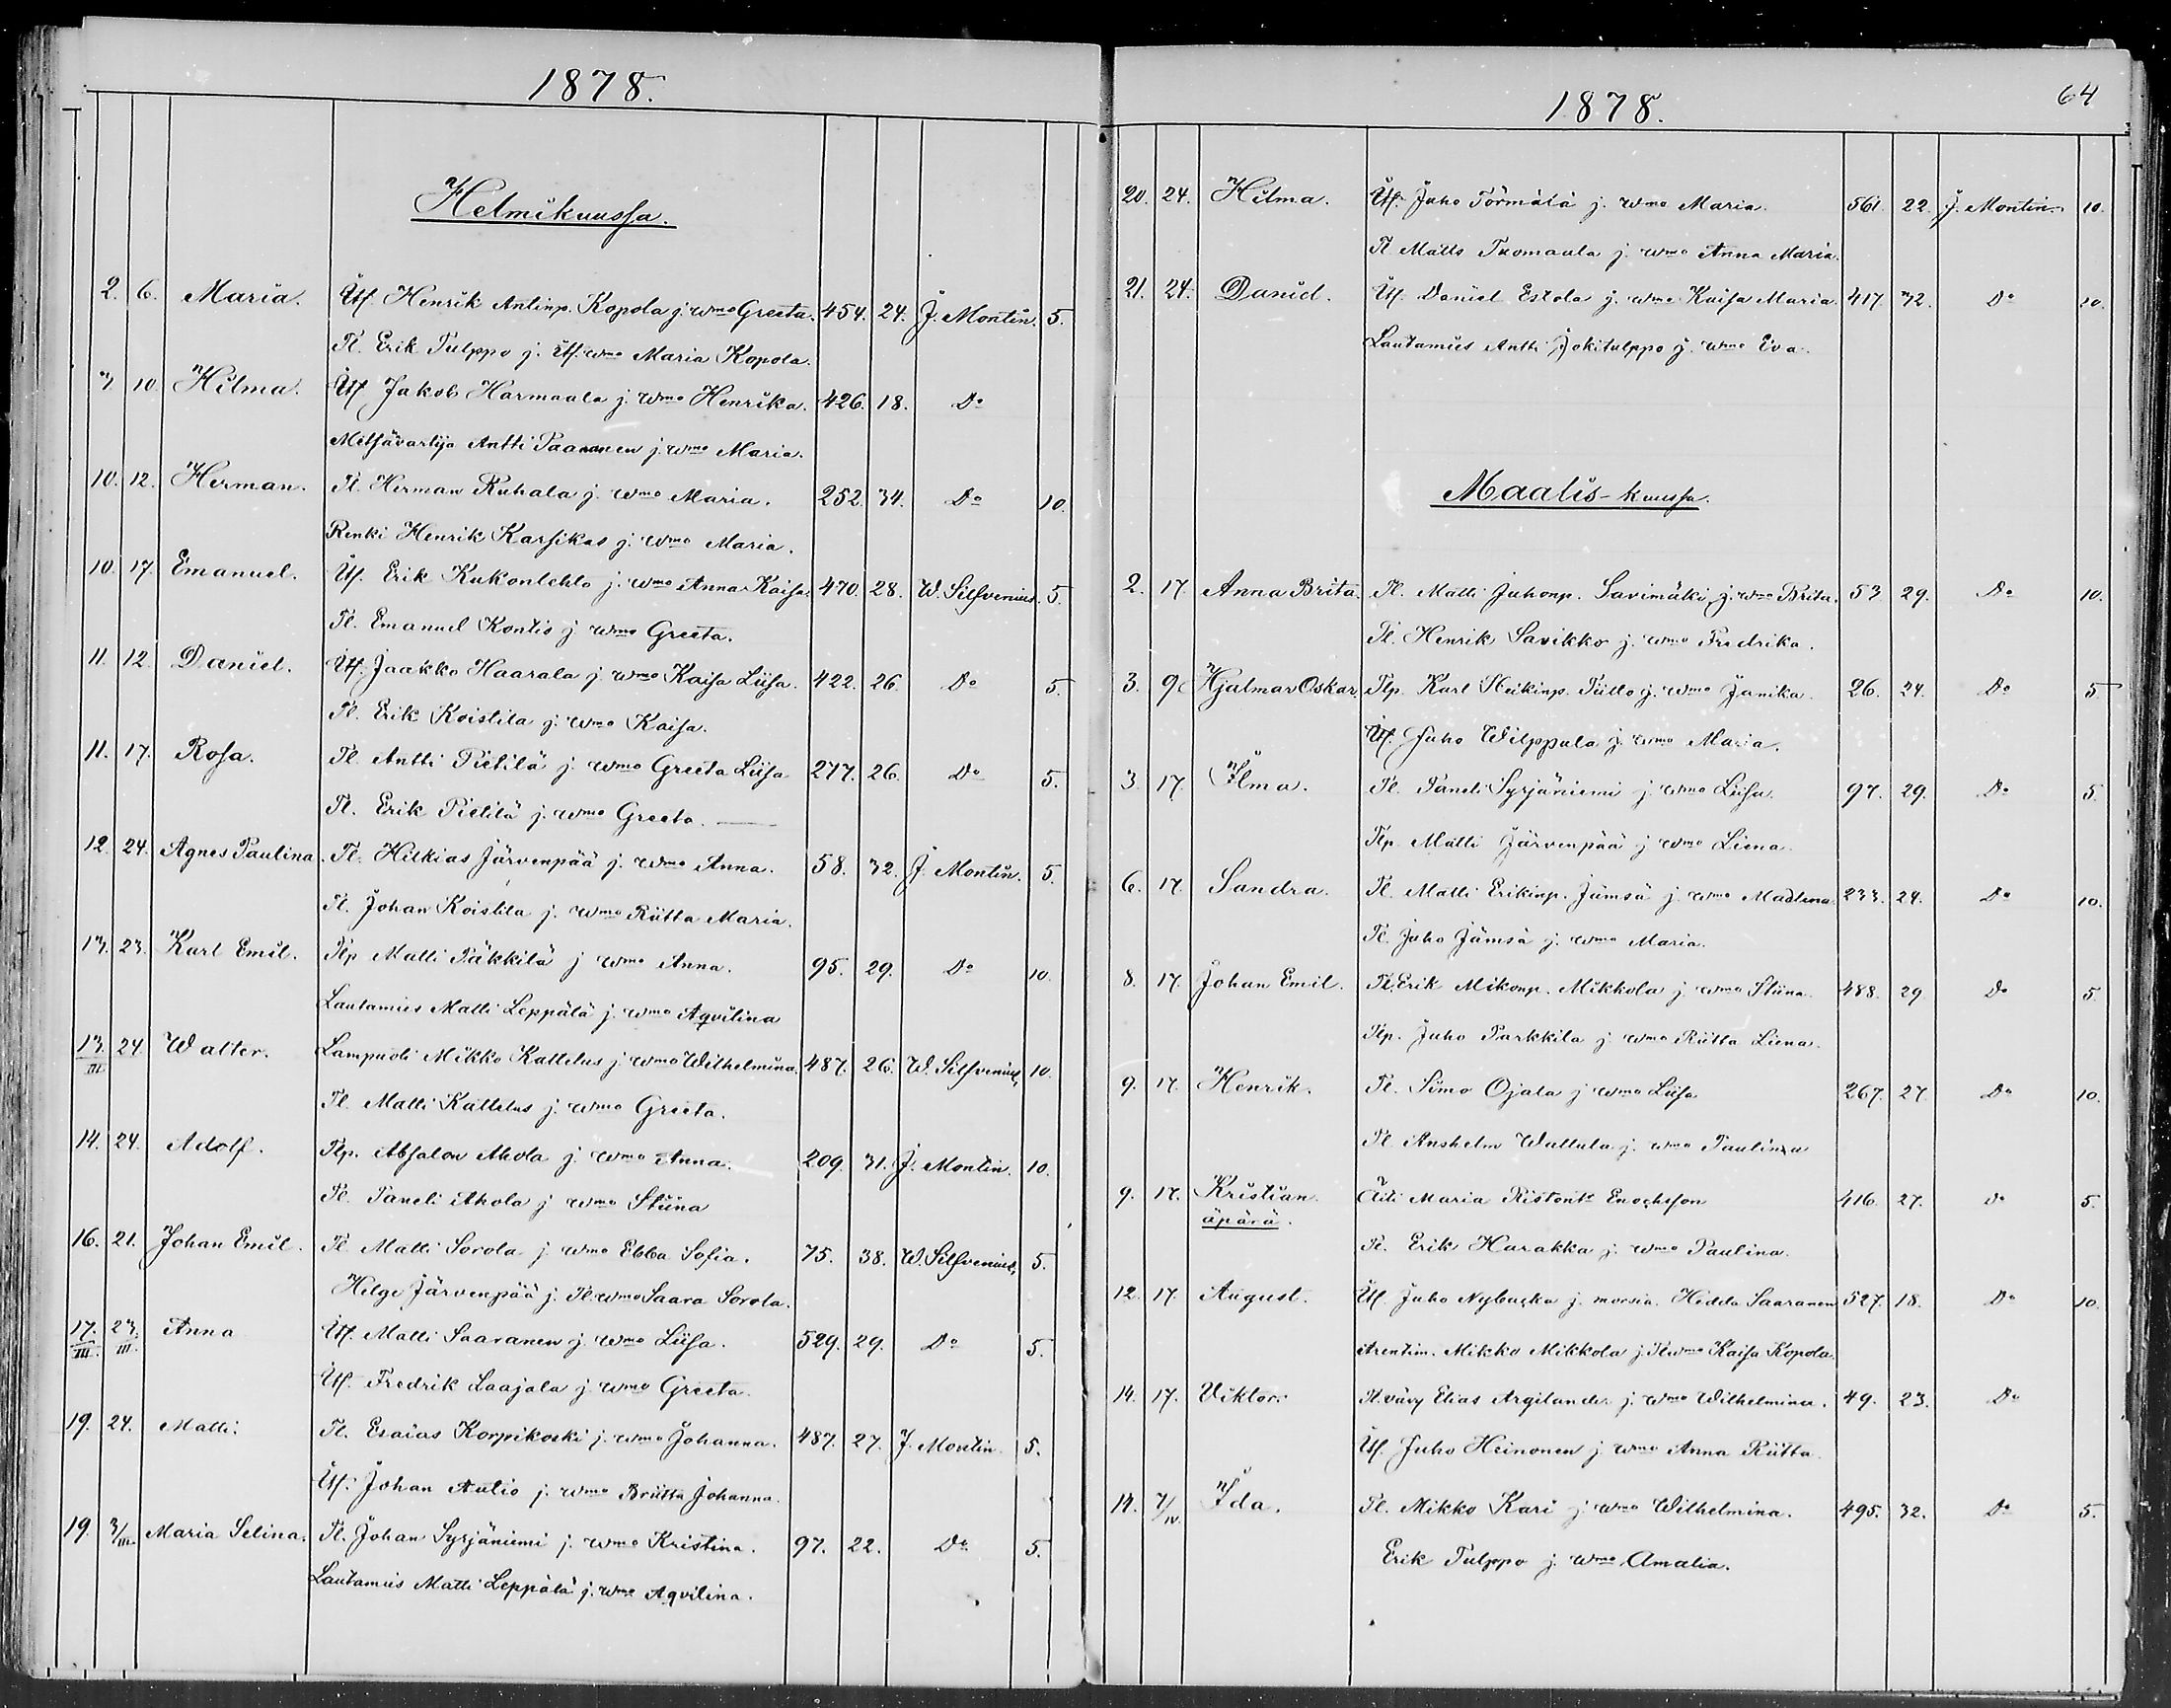 1878.
Helmikuussa.
2. 6. Maria. Itf. Henrik Antinp. Kopola j. wmo Greeta. 454. 24. J. Montin. 5.
Tl. Erik Tulppo j. Itf. wmo Maria Kopola.
3 10. Hilma. Itf Jakob Harmaala j. wmo Henrika. 426. 18. Do
Metsävartija Antti Paananen j. wmo Maria.
10. 12. Herman. Tl. Herman Ruhala j. wmo Maria. 252. 34. Do 10.
Renki Henrik Karsikas j. wmo Maria.
10. 17. Emanuel. Itf. Erik Kukonlehto j. wmo Anna Kaisa. 470. 28. W. Silfvenius. 5.
Tl. Emanuel Kontio j wmo Greeta.
11. 12. Daniel. Itf. Jaakko Haarala j. wmo Kaisa Liisa. 422. 26. Do 5.
Tl. Erik Koistila j. wmo Kaisa.
11. 17. Rosa. Tl Antti Pietilä j. wmo Greeta Liisa 277. 26. Do 5.
Tl. Erik Pietilä j. wmo Greeta.
12. 24. Agnes Paulina. Tl. Hilkias Järvenpää j. wmo Anna. 58. 32. J. Montin. 5.
Tl. Johan Koistila j. wmo Riitta Maria.
13. 23. Karl Emil. Tlp Matti Päkkilä j wmo Anna. 95. 29. Do 10.
Lautamies Matti Leppälä j. wmo Aqvilina
13. III 24. Walter. Lampuoti Mikko Kattelus j. wmo Wilhelmina. 487. 26. W. Silfvenius, 10.
Tl Matti Kattelus j. wmo Greeta.
14. 24. Adolf. Tlp. Absalon Ahola j. wmo Anna. 209. 31. J. Montin. 10.
Tl. Taneli Ahola j wmo Stiina
16. 21. Johan Emil. Tl Matti Sorola j. wmo Ebba Sofia. 75. 38. W. Silfvenius, 5.
Helge Järvenpää j. Tl. wmo Saara Sorola.
17. III. 23. III. Anna Itf. Matti Saaranen j. wmo Liisa. 529. 29. Do 5.
Itf. Fredrik Laajala j. wmo Greeta.
19. 24. Matti. Tl. Esaias Korpikoski j. wmo Johanna. 487. 27. J. Montin. 5.
Itf. Johan Autio j. wmo Briitta Johanna.
19. 3/III. Maria Selina. Tl. Johan Syrjäniemi j. wmo Kristina. 97. 22. Do 5.
Lautamies Matti Leppälä j. wmo Aqvilina.
1878. 64
20. 24. Hilma. Itf. Juho Törmälä j. wmo Maria. 561. 22. J. Montin. 10.
Tl Matts Tuomaala j. wmo Anna Maria.
21. 24. Daniel. Itf. Daniel Estola j. wmo Kaisa Maria. 417. 32. Do 10.
Lautamies Antti Jokitulppo j. wmo Eva.
Maalis-kuussa.
2. 17. Anna Brita. Tl. Matti Juhonp. Savimäki j. wmo Brita. 53 29. Do 10.
Tl. Henrik Savikko j. wmo Fredrika.
3. 9 Hjalmar Oskar. Tlp. Karl Heikinp. Piitto j. wmo Janika. 26. 24. Do 5
Itf. Juho Wilppula j. wmo Maria.
3. 17. Ilma. Tl. Taneli Syrjäniemi j wmo Liisa. 97. 29. Do 5.
Tlp. Matti Järvenpää j wmo Liena.
6. 17. Sandra. Tl. Matti Erikinp. Jämsä j. wmo Madlena. 233. 24. Do 10.
Tl. Juho Jämsä j. wmo Maria.
8. 17. Johan Emil. Tl. Erik Mikonp. Mikkola j. wmo Stiina. 488. 29 Do 5.
Tlp. Juho Parkkila j. wmo Riitta Liena.
9. 17. Henrik. Tl. Simo Ojala j wmo Liisa 267. 27. Do 10.
Tl. Anshelm Wattula j. wmo Paulina
9. 17. Kristian. Äiti Maria Ristontr Enochsson 416. 27. Do 5.
äpärä.
Tl. Erik Harakka j. wmo Paulina.
12. 17 August. Itf Juho Nybacka j. morsia. Hedda Saaranen 527. 18. Do 10.
Arentim. Mikko Mikkola j. Tl wmo Kaisa Kopola.
14. 17. Viktor. Tl. vävy Elias Argilander j. wmo Wilhelmina. 49. 23. Do
Itf. Juho Heinonen j. wmo Anna Riitta.
14. 7/IV. Ida. Tl. Mikko Kari j. wmo Wilhelmina. 495. 32. Do 5.
Erik Tulppo j. wmo Amalia.